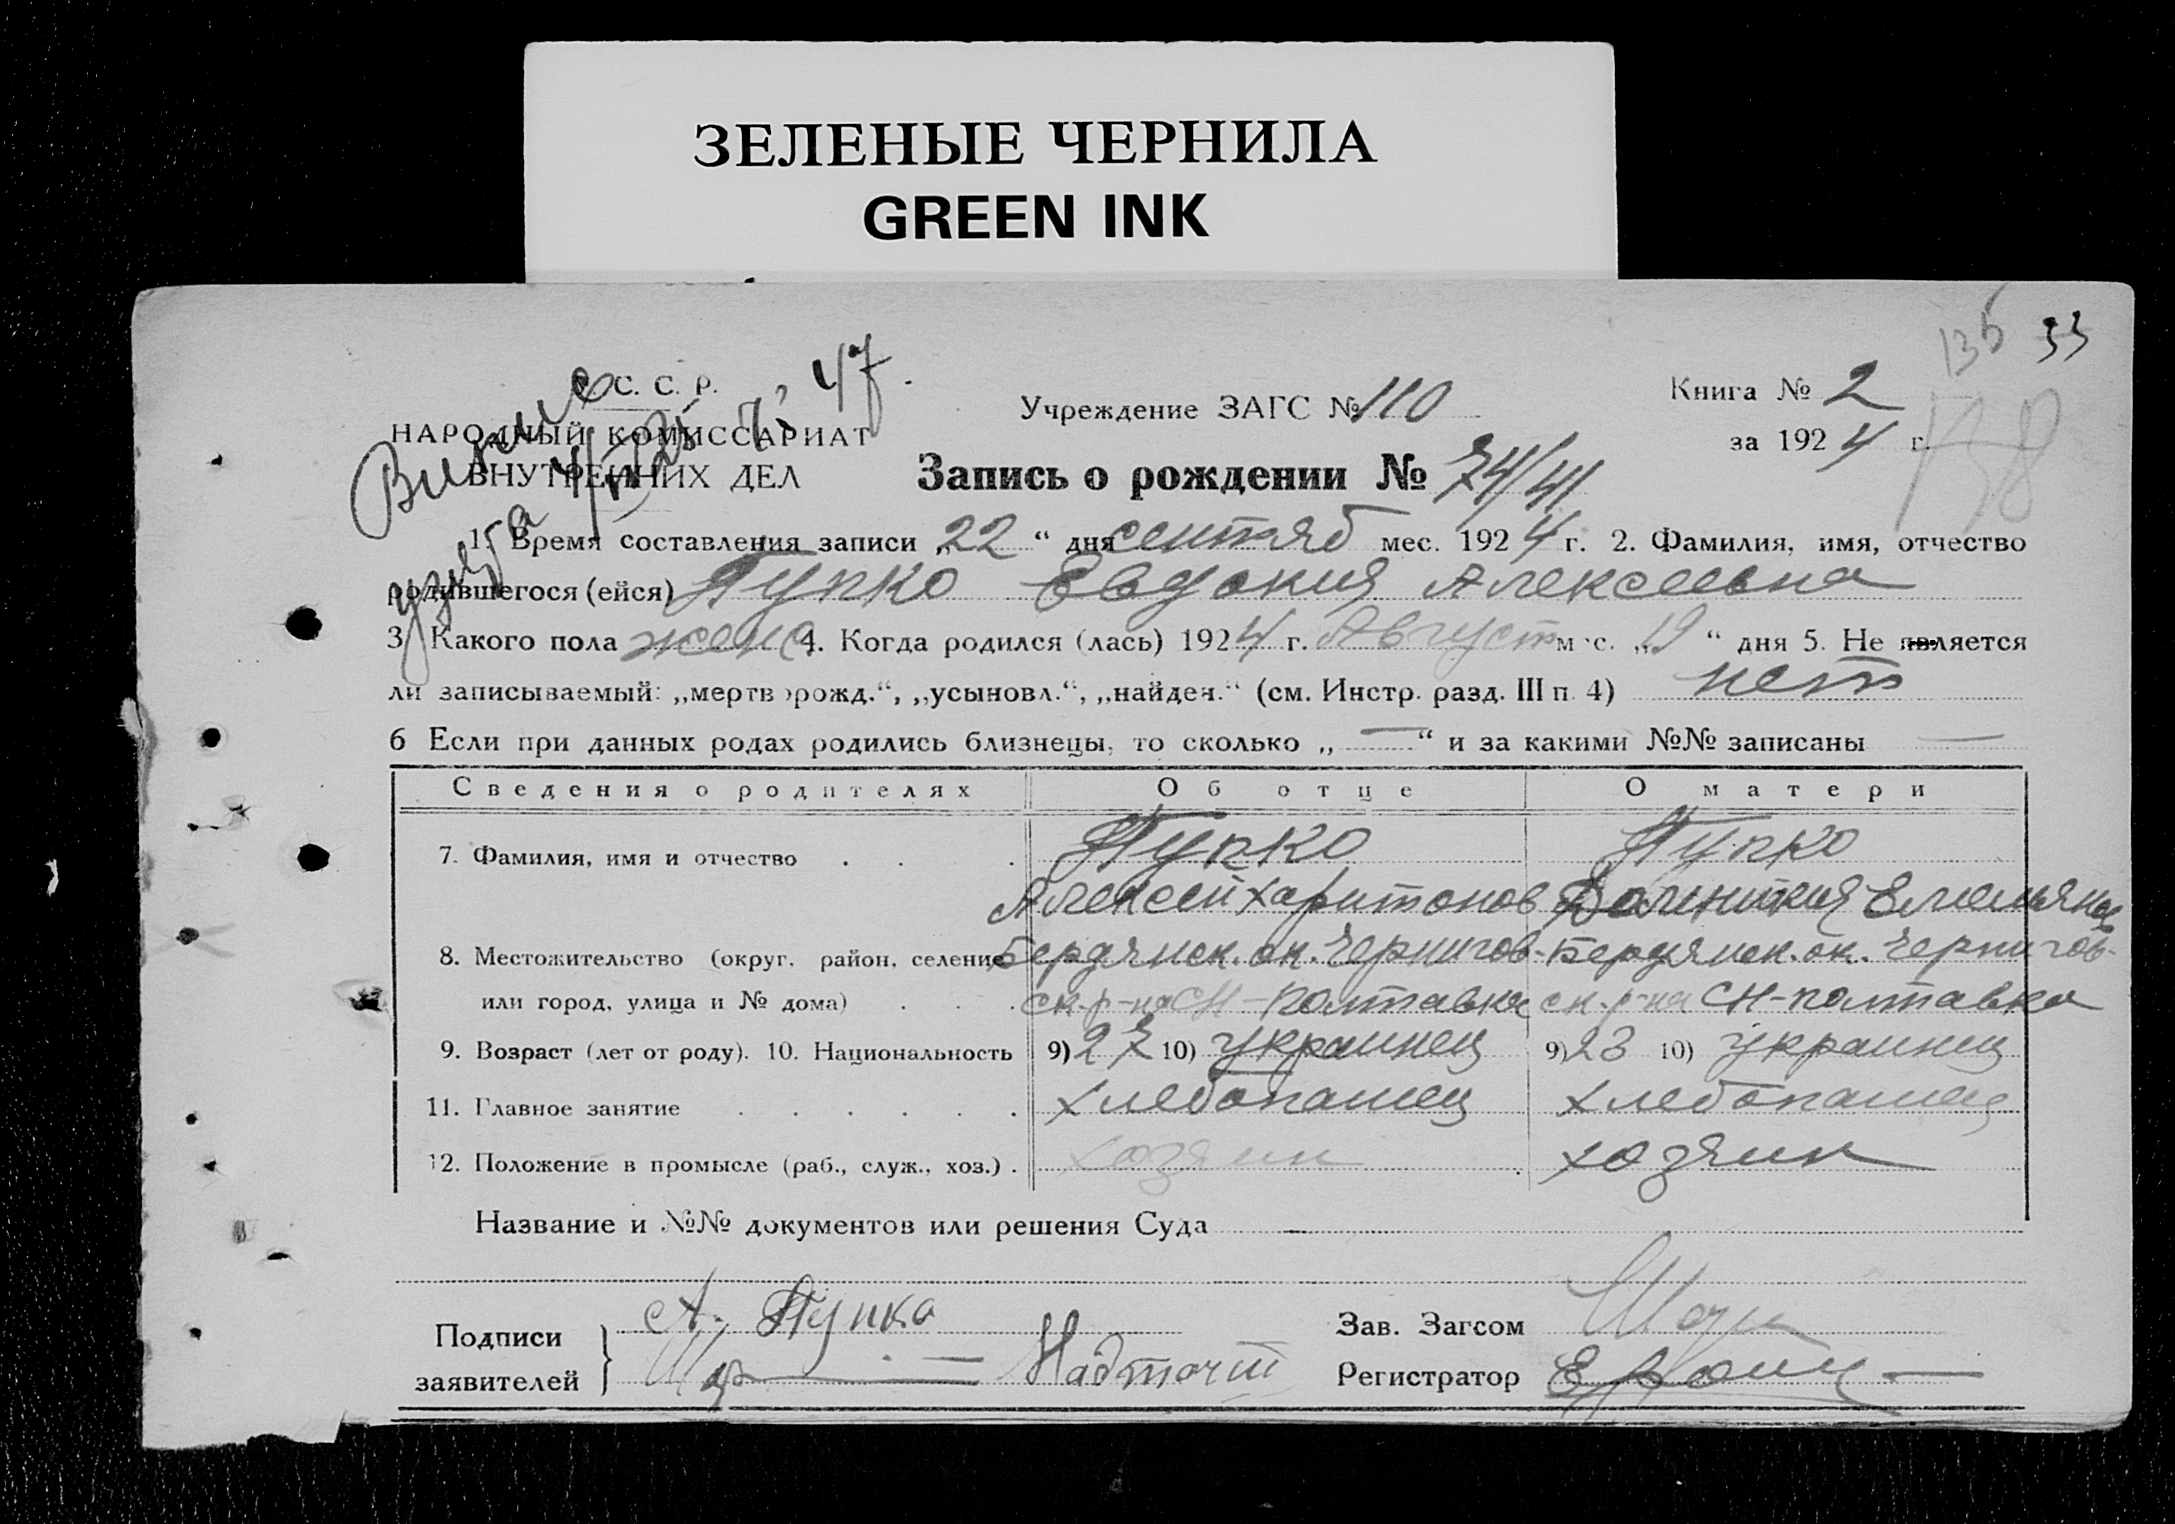 ЗЕЛЕНЫЕ ЧЕРНИЛА
GREEN INK
135 33
138
С. С. Р.
НАРОДНЫЙ КОМИССАРИАТ
ВНУТРЕННИХ ДЕЛ
47
Учреждение ЗАГС № 110
Книга № 2
за 1924 г.
Запись о рождении № 74/41
1. Время составления записи „22“ дня сентяб мес. 1924 г. 2. Фамилия, имя, отчество
родившегося (ейся) Пупко Евдокия Алексеевна
3. Какого пола жено 4. Когда родился (лась) 1924 г. Август м с. „19“ дня 5. Не является
ли записываемый: „мертворожд.“, „усыновл.“, „найден.“ (см. Инстр. разд. III п. 4) нет
6 Если при данных родах родились близнецы, то сколько „—“ и за какими №№ записаны —
Сведения о родителях Об отце О матери
7. Фамилия, имя и отчество Пупко Пупко
Алексей Харитонов Емельянов
8. Местожительство (округ, район, селение Бердянск. ок. Чернигов- Бердянск. ок. Чернигов-
или город, улица и № дома) ск. р-на СН-Полтавка ск. р-на СН-Полтавка
9. Возраст (лет от роду). 10. Национальность 9) 27 10) украинец 9) 23 10) украинец
11. Главное занятие хлебопашец хлебопашец
12. Положение в промысле (раб., служ., хоз.) . хозяин хозяин
Название и №№ документов или решения Суда —
Подписи А. Пупко Зав. Загсом
заявителей Надточий Регистратор